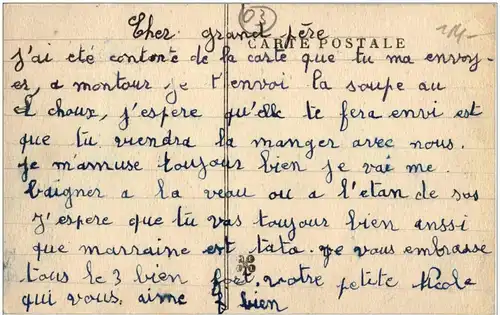 Cher grand père
63
CARTE POSTALE
j'ai été contente de la carte que tu ma envoy-
er, a montour je t'envoi la soupe au
choux, j'espere qu'elle te fera envi est
que tu viendra la manger avec nous.
je m'amuse toujour bien je vai me
baigner a la veau ou a l'etan de sos
J'espere que tu vas toujour bien aussi
que marraine est tata. je vous embrasse
tous le 3 bien fort, votre petite Nicole
qui vous, aime bien